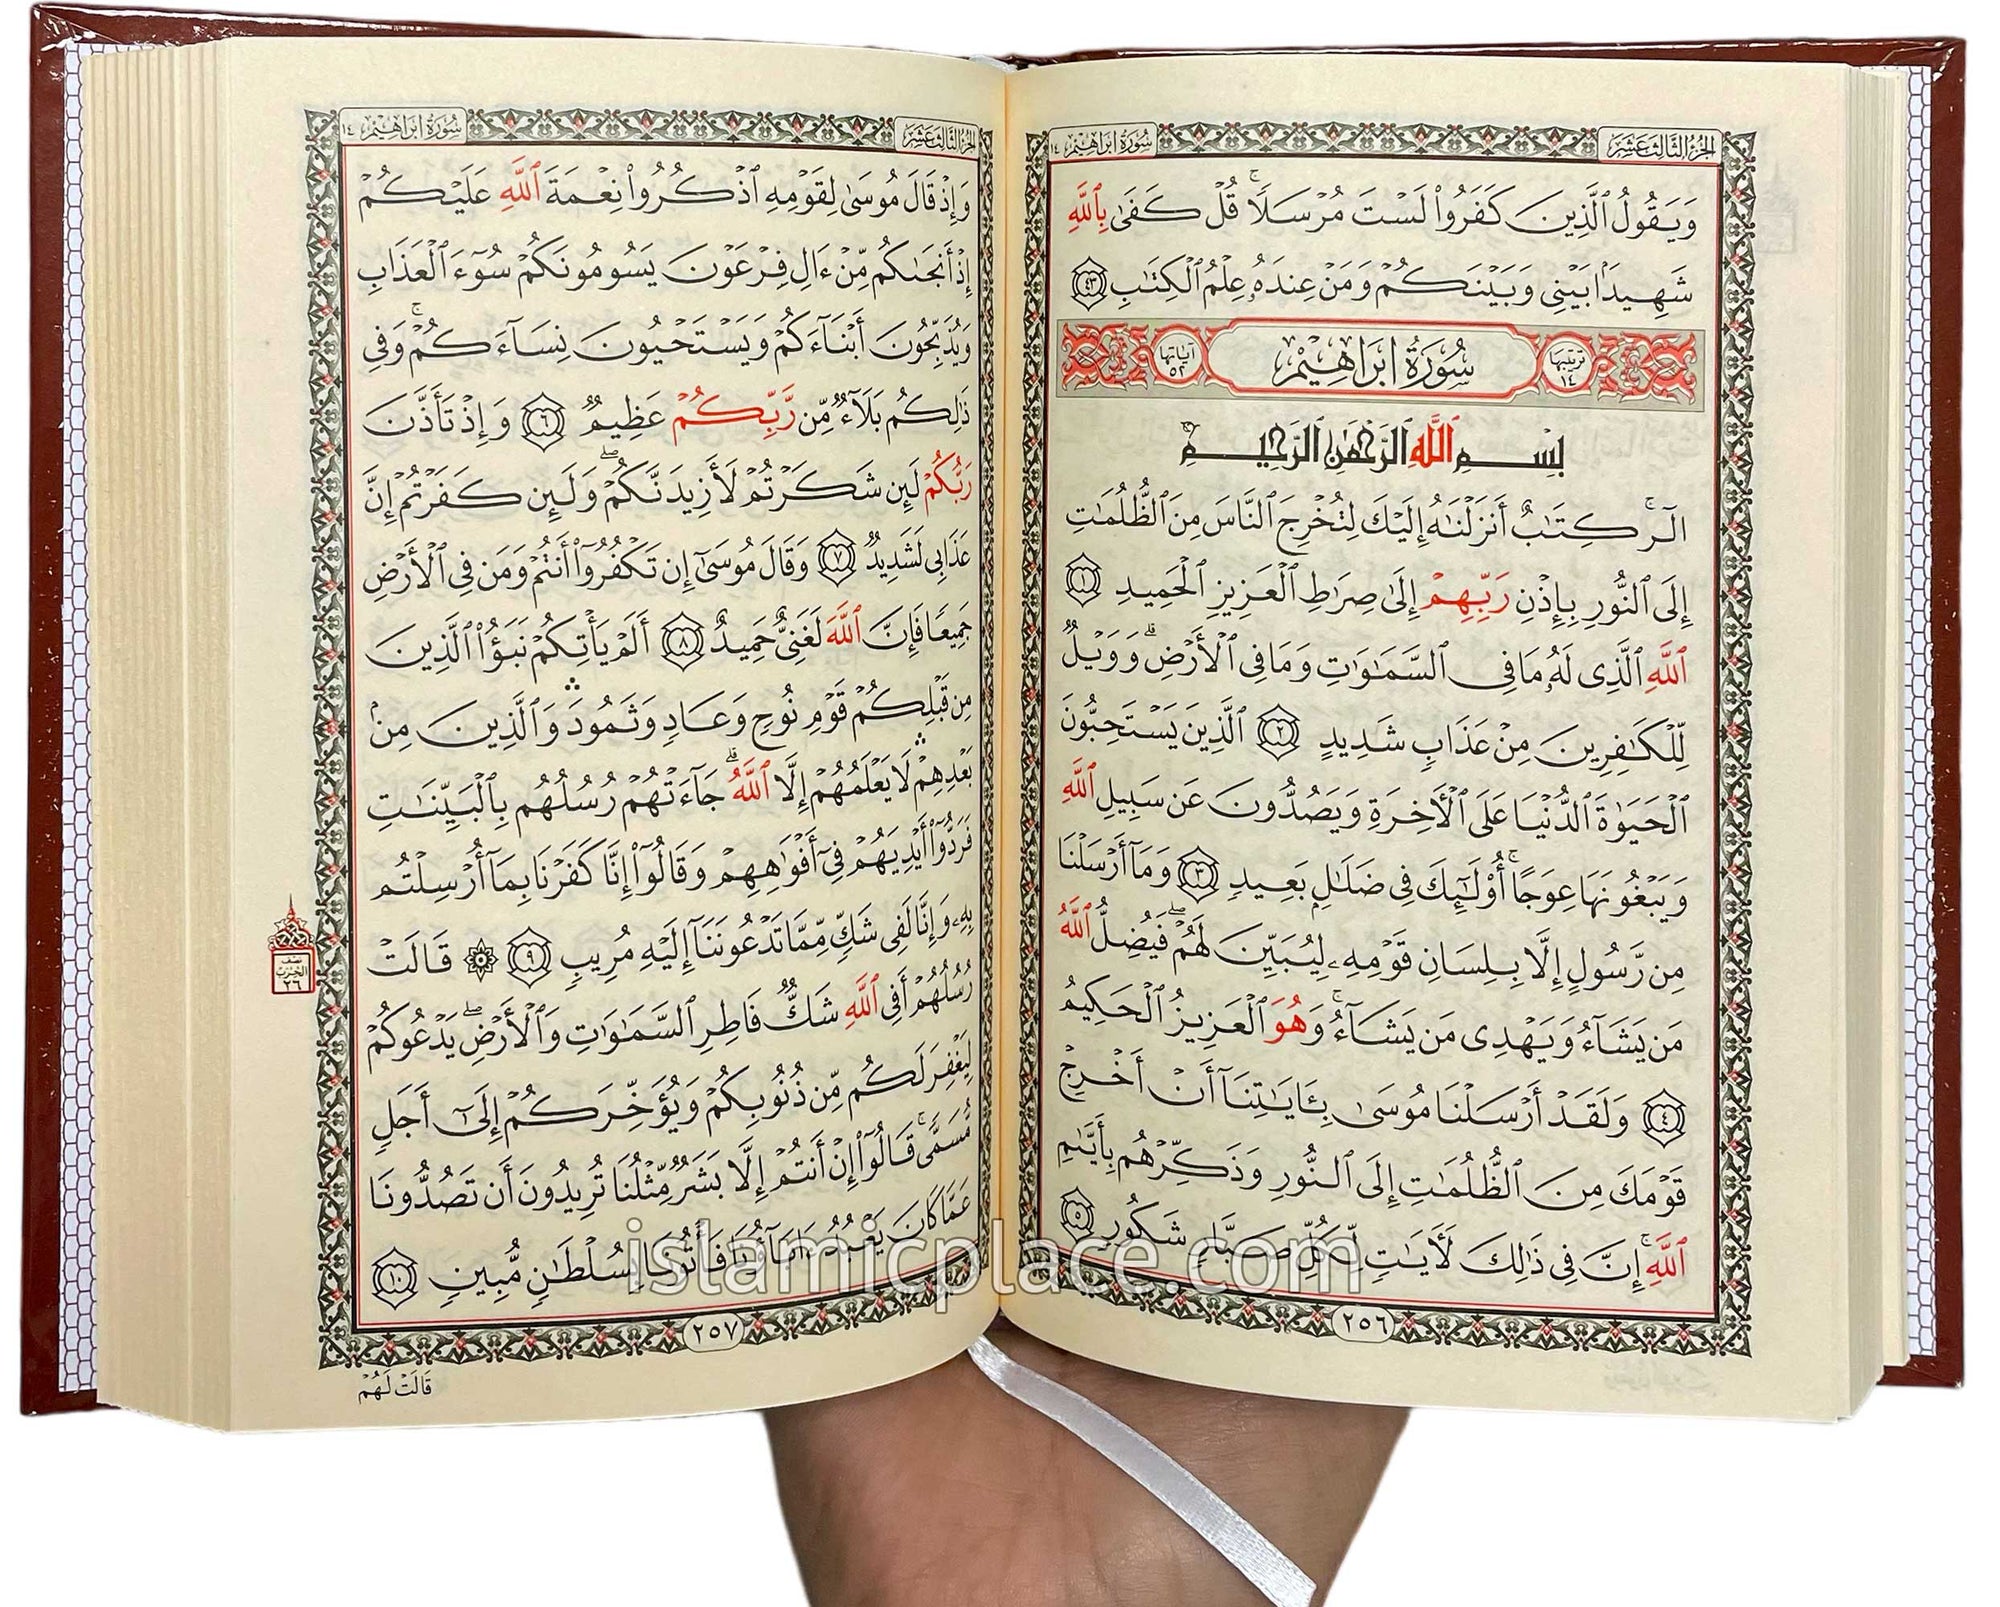 الجزء الثالث عشر
سورة ابراهيم ١٤
وَيَقُولُ ٱلَّذِينَ كَفَرُوا۟ لَسْتَ مُرْسَلًا ۚ قُلْ كَفَىٰ بِٱللَّهِ
شَهِيدًۢا بَيْنِى وَبَيْنَكُمْ وَمَنْ عِندَهُۥ عِلْمُ ٱلْكِتَـٰبِ ٤٣
ترتيبها ١٤
سُورَةُ ابراهِيْمَ
آياتها ٥٢
بِسْمِ ٱللَّهِ ٱلرَّحْمَـٰنِ ٱلرَّحِيمِ
الٓر ۚ كِتَـٰبٌ أَنزَلْنَـٰهُ إِلَيْكَ لِتُخْرِجَ ٱلنَّاسَ مِنَ ٱلظُّلُمَـٰتِ
إِلَى ٱلنُّورِ بِإِذْنِ رَبِّهِمْ إِلَىٰ صِرَٰطِ ٱلْعَزِيزِ ٱلْحَمِيدِ ١
ٱللَّهِ ٱلَّذِى لَهُۥ مَا فِى ٱلسَّمَـٰوَٰتِ وَمَا فِى ٱلْأَرْضِ ۗ وَوَيْلٌ
لِّلْكَـٰفِرِينَ مِنْ عَذَابٍ شَدِيدٍ ٢ ٱلَّذِينَ يَسْتَحِبُّونَ
ٱلْحَيَوٰةَ ٱلدُّنْيَا عَلَى ٱلْـَٔاخِرَةِ وَيَصُدُّونَ عَن سَبِيلِ ٱللَّهِ
وَيَبْغُونَهَا عِوَجًا ۚ أُو۟لَـٰٓئِكَ فِى ضَلَـٰلٍۭ بَعِيدٍ ٣ وَمَآ أَرْسَلْنَا
مِن رَّسُولٍ إِلَّا بِلِسَانِ قَوْمِهِۦ لِيُبَيِّنَ لَهُمْ ۖ فَيُضِلُّ ٱللَّهُ
مَن يَشَآءُ وَيَهْدِى مَن يَشَآءُ ۚ وَهُوَ ٱلْعَزِيزُ ٱلْحَكِيمُ
٤ وَلَقَدْ أَرْسَلْنَا مُوسَىٰ بِـَٔايَـٰتِنَآ أَنْ أَخْرِجْ
قَوْمَكَ مِنَ ٱلظُّلُمَـٰتِ إِلَى ٱلنُّورِ وَذَكِّرْهُم بِأَيَّىٰمِ
ٱللَّهِ ۚ إِنَّ فِى ذَٰلِكَ لَـَٔايَـٰتٍ لِّكُلِّ صَبَّارٍ شَكُورٍ ٥
٢٥٦
الجزء الثالث عشر
سورة ابراهيم ١٤
وَإِذْ قَالَ مُوسَىٰ لِقَوْمِهِ ٱذْكُرُوا۟ نِعْمَةَ ٱللَّهِ عَلَيْكُمْ
إِذْ أَنجَىٰكُم مِّنْ ءَالِ فِرْعَوْنَ يَسُومُونَكُمْ سُوٓءَ ٱلْعَذَابِ
وَيُذَبِّحُونَ أَبْنَآءَكُمْ وَيَسْتَحْيُونَ نِسَآءَكُمْ ۚ وَفِى
ذَٰلِكُم بَلَآءٌ مِّن رَّبِّكُمْ عَظِيمٌ ٦ وَإِذْ تَأَذَّنَ
رَبُّكُمْ لَئِن شَكَرْتُمْ لَأَزِيدَنَّكُمْ ۖ وَلَئِن كَفَرْتُمْ إِنَّ
عَذَابِى لَشَدِيدٌ ٧ وَقَالَ مُوسَىٰٓ إِن تَكْفُرُوٓا۟ أَنتُمْ وَمَن فِى ٱلْأَرْضِ
جَمِيعًا فَإِنَّ ٱللَّهَ لَغَنِىٌّ حَمِيدٌ ٨ أَلَمْ يَأْتِكُمْ نَبَؤُا۟ ٱلَّذِينَ
مِن قَبْلِكُمْ قَوْمِ نُوحٍ وَعَادٍ وَثَمُودَ ۛ وَٱلَّذِينَ مِنۢ
بَعْدِهِمْ ۛ لَا يَعْلَمُهُمْ إِلَّا ٱللَّهُ ۚ جَآءَتْهُمْ رُسُلُهُم بِٱلْبَيِّنَـٰتِ
فَرَدُّوٓا۟ أَيْدِيَهُمْ فِىٓ أَفْوَٰهِهِمْ وَقَالُوٓا۟ إِنَّا كَفَرْنَا بِمَآ أُرْسِلْتُم
بِهِۦ وَإِنَّا لَفِى شَكٍّ مِّمَّا تَدْعُونَنَآ إِلَيْهِ مُرِيبٍ ٩ ۞ قَالَتْ
رُسُلُهُمْ أَفِى ٱللَّهِ شَكٌّ فَاطِرِ ٱلسَّمَـٰوَٰتِ وَٱلْأَرْضِ ۖ يَدْعُوكُمْ
لِيَغْفِرَ لَكُم مِّن ذُنُوبِكُمْ وَيُؤَخِّرَكُمْ إِلَىٰٓ أَجَلٍ
مُّسَمًّى ۚ قَالُوٓا۟ إِنْ أَنتُمْ إِلَّا بَشَرٌ مِّثْلُنَا تُرِيدُونَ أَن تَصُدُّونَا
عَمَّا كَانَ يَعْبُدُ ءَابَآؤُنَا فَأْتُونَا بِسُلْطَـٰنٍ مُّبِينٍ ١٠
نصف
الحزب
٢٦
٢٥٧
قَالَتْ لَهُمْ
islamicplace.com